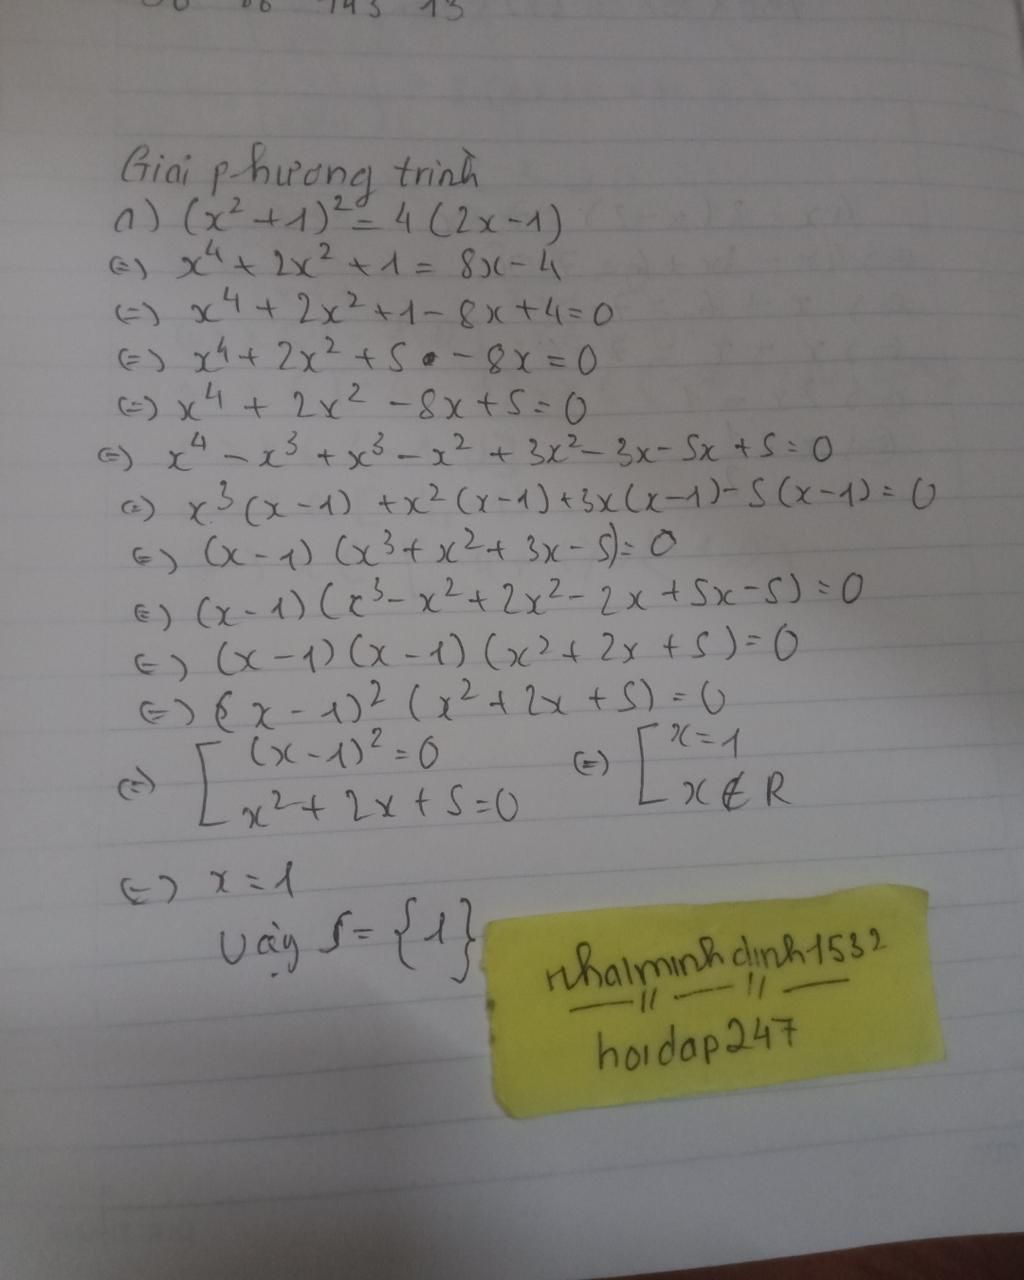 Giải phương trình
a) (x² + 1)² = 4 (2x - 1)
(=) x⁴ + 2x² + 1 = 8x - 4
(=) x⁴ + 2x² + 1 - 8x + 4 = 0
(=) x⁴ + 2x² + 5 - 8x = 0
(=) x⁴ + 2x² - 8x + 5 = 0
(=) x⁴ - x³ + x³ - x² + 3x² - 3x - 5x + 5 = 0
(=) x³ (x - 1) + x² (x - 1) + 3x (x - 1) - 5 (x - 1) = 0
(=) (x - 1) (x³ + x² + 3x - 5) = 0
(=) (x - 1) (x³ - x² + 2x² - 2x + 5x - 5) = 0
(=) (x - 1) (x - 1) (x² + 2x + 5) = 0
(=) (x - 1)² (x² + 2x + 5) = 0
(=) [ (x - 1)² = 0 (=) [ x = 1
x² + 2x + 5 = 0 x ∉ R
(=) x = 1
Vậy S = {1}
nhalminhdinh1532
hoidap247